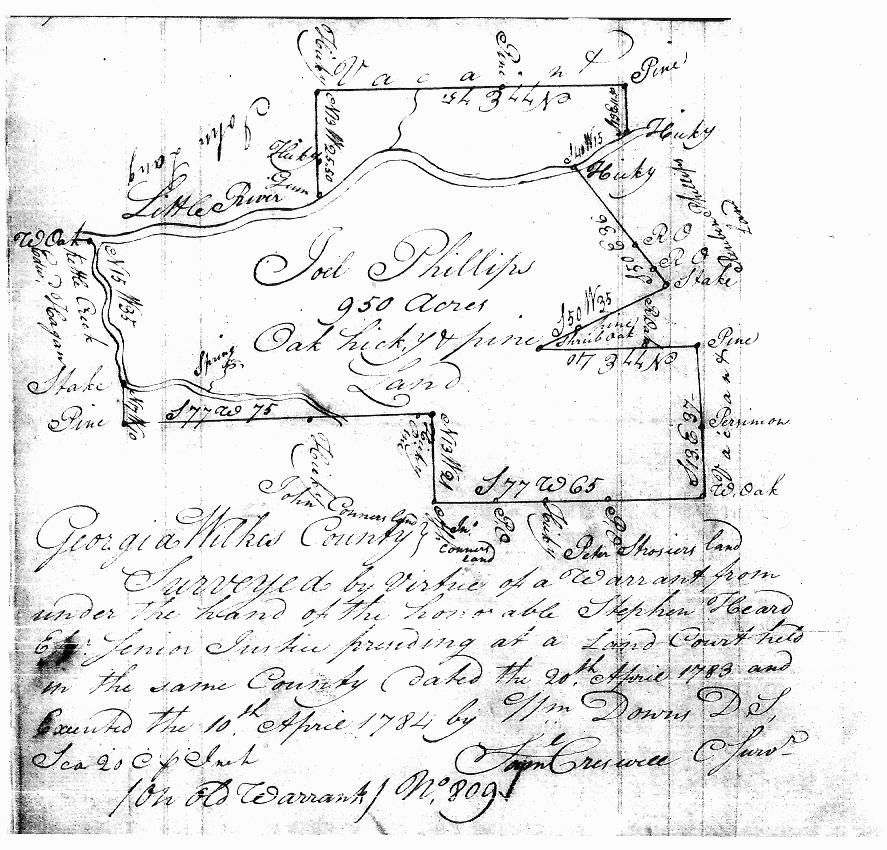 Vacant
Hicky
Pine
Pine
N 44 E 45
N 13 W 25.50
John Long
Hicky
Gum
Little River
S 40 W 15
Hicky
Hicky
W Oak
Kettle Creek
N 15 W 35
Joel Phillips
950 Acres
Oak hick,y & pine
Land
S 50 E 36
R O
R O
Stake
Land
S 50 W 35
pine
Shrub Oak
N 44 E 40
Pine
Vacant
Persimon
S 13 E 37
W. Oak
Spring
Stake
Pine
N 7 W 10
S 77 W 75
Hicky
John Conners land
N 13 W 21
S 77 W 65
Jno
Conners
Land
R O
Hicky
R O
Peter Strosiers land
Georgia Wilkes County }
Surveyed by Virtue of a Warrant from
under the hand of the honorable Stephen Heard
Esqr: Senior Justice presiding at a Land Court held
in the same County dated the 20th April 1783 and
Executed the 10th April 1784 by Wm Downs D S,
Sca 20 C p Inch
Saml Creswell C Survr
/On Old Warrant/ No. 809